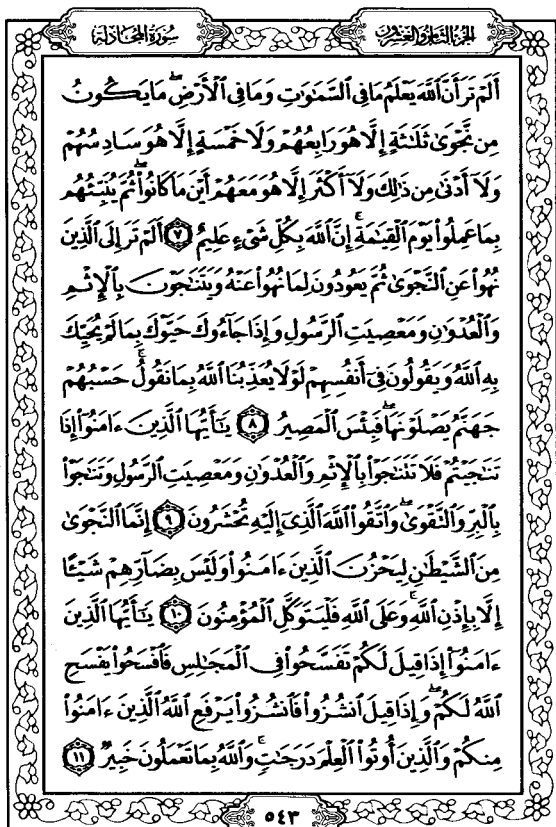 سُورَةُ المُجَادلَةِ
الجُزْءُ الثَّامِنُ وَالعِشْرُونَ
أَلَمۡ تَرَ أَنَّ ٱللَّهَ يَعۡلَمُ مَا فِي ٱلسَّمَٰوَٰتِ وَمَا فِي ٱلۡأَرۡضِۖ مَا يَكُونُ
مِن نَّجۡوَىٰ ثَلَٰثَةٍ إِلَّا هُوَ رَابِعُهُمۡ وَلَا خَمۡسَةٍ إِلَّا هُوَ سَادِسُهُمۡ
وَلَآ أَدۡنَىٰ مِن ذَٰلِكَ وَلَآ أَكۡثَرَ إِلَّا هُوَ مَعَهُمۡ أَيۡنَ مَا كَانُواْۖ ثُمَّ يُنَبِّئُهُم
بِمَا عَمِلُواْ يَوۡمَ ٱلۡقِيَٰمَةِۚ إِنَّ ٱللَّهَ بِكُلِّ شَيۡءٍ عَلِيمٌ ٧ أَلَمۡ تَرَ إِلَى ٱلَّذِينَ
نُهُواْ عَنِ ٱلنَّجۡوَىٰ ثُمَّ يَعُودُونَ لِمَا نُهُواْ عَنۡهُ وَيَتَنَٰجَوۡنَ بِٱلۡإِثۡمِ
وَٱلۡعُدۡوَٰنِ وَمَعۡصِيَتِ ٱلرَّسُولِ وَإِذَا جَآءُوكَ حَيَّوۡكَ بِمَا لَمۡ يُحَيِّكَ
بِهِ ٱللَّهُ وَيَقُولُونَ فِيٓ أَنفُسِهِمۡ لَوۡلَا يُعَذِّبُنَا ٱللَّهُ بِمَا نَقُولُۚ حَسۡبُهُمۡ
جَهَنَّمُ يَصۡلَوۡنَهَاۖ فَبِئۡسَ ٱلۡمَصِيرُ ٨ يَٰٓأَيُّهَا ٱلَّذِينَ ءَامَنُوٓاْ إِذَا
تَنَٰجَيۡتُمۡ فَلَا تَتَنَٰجَوۡاْ بِٱلۡإِثۡمِ وَٱلۡعُدۡوَٰنِ وَمَعۡصِيَتِ ٱلرَّسُولِ وَتَنَٰجَوۡاْ
بِٱلۡبِرِّ وَٱلتَّقۡوَىٰۖ وَٱتَّقُواْ ٱللَّهَ ٱلَّذِيٓ إِلَيۡهِ تُحۡشَرُونَ ٩ إِنَّمَا ٱلنَّجۡوَىٰ
مِنَ ٱلشَّيۡطَٰنِ لِيَحۡزُنَ ٱلَّذِينَ ءَامَنُواْ وَلَيۡسَ بِضَآرِّهِمۡ شَيۡـًٔا
إِلَّا بِإِذۡنِ ٱللَّهِۚ وَعَلَى ٱللَّهِ فَلۡيَتَوَكَّلِ ٱلۡمُؤۡمِنُونَ ١٠ يَٰٓأَيُّهَا ٱلَّذِينَ
ءَامَنُوٓاْ إِذَا قِيلَ لَكُمۡ تَفَسَّحُواْ فِي ٱلۡمَجَٰلِسِ فَٱفۡسَحُواْ يَفۡسَحِ
ٱللَّهُ لَكُمۡۖ وَإِذَا قِيلَ ٱنشُزُواْ فَٱنشُزُواْ يَرۡفَعِ ٱللَّهُ ٱلَّذِينَ ءَامَنُواْ
مِنكُمۡ وَٱلَّذِينَ أُوتُواْ ٱلۡعِلۡمَ دَرَجَٰتٖۚ وَٱللَّهُ بِمَا تَعۡمَلُونَ خَبِيرٞ ١١
٥٤٣